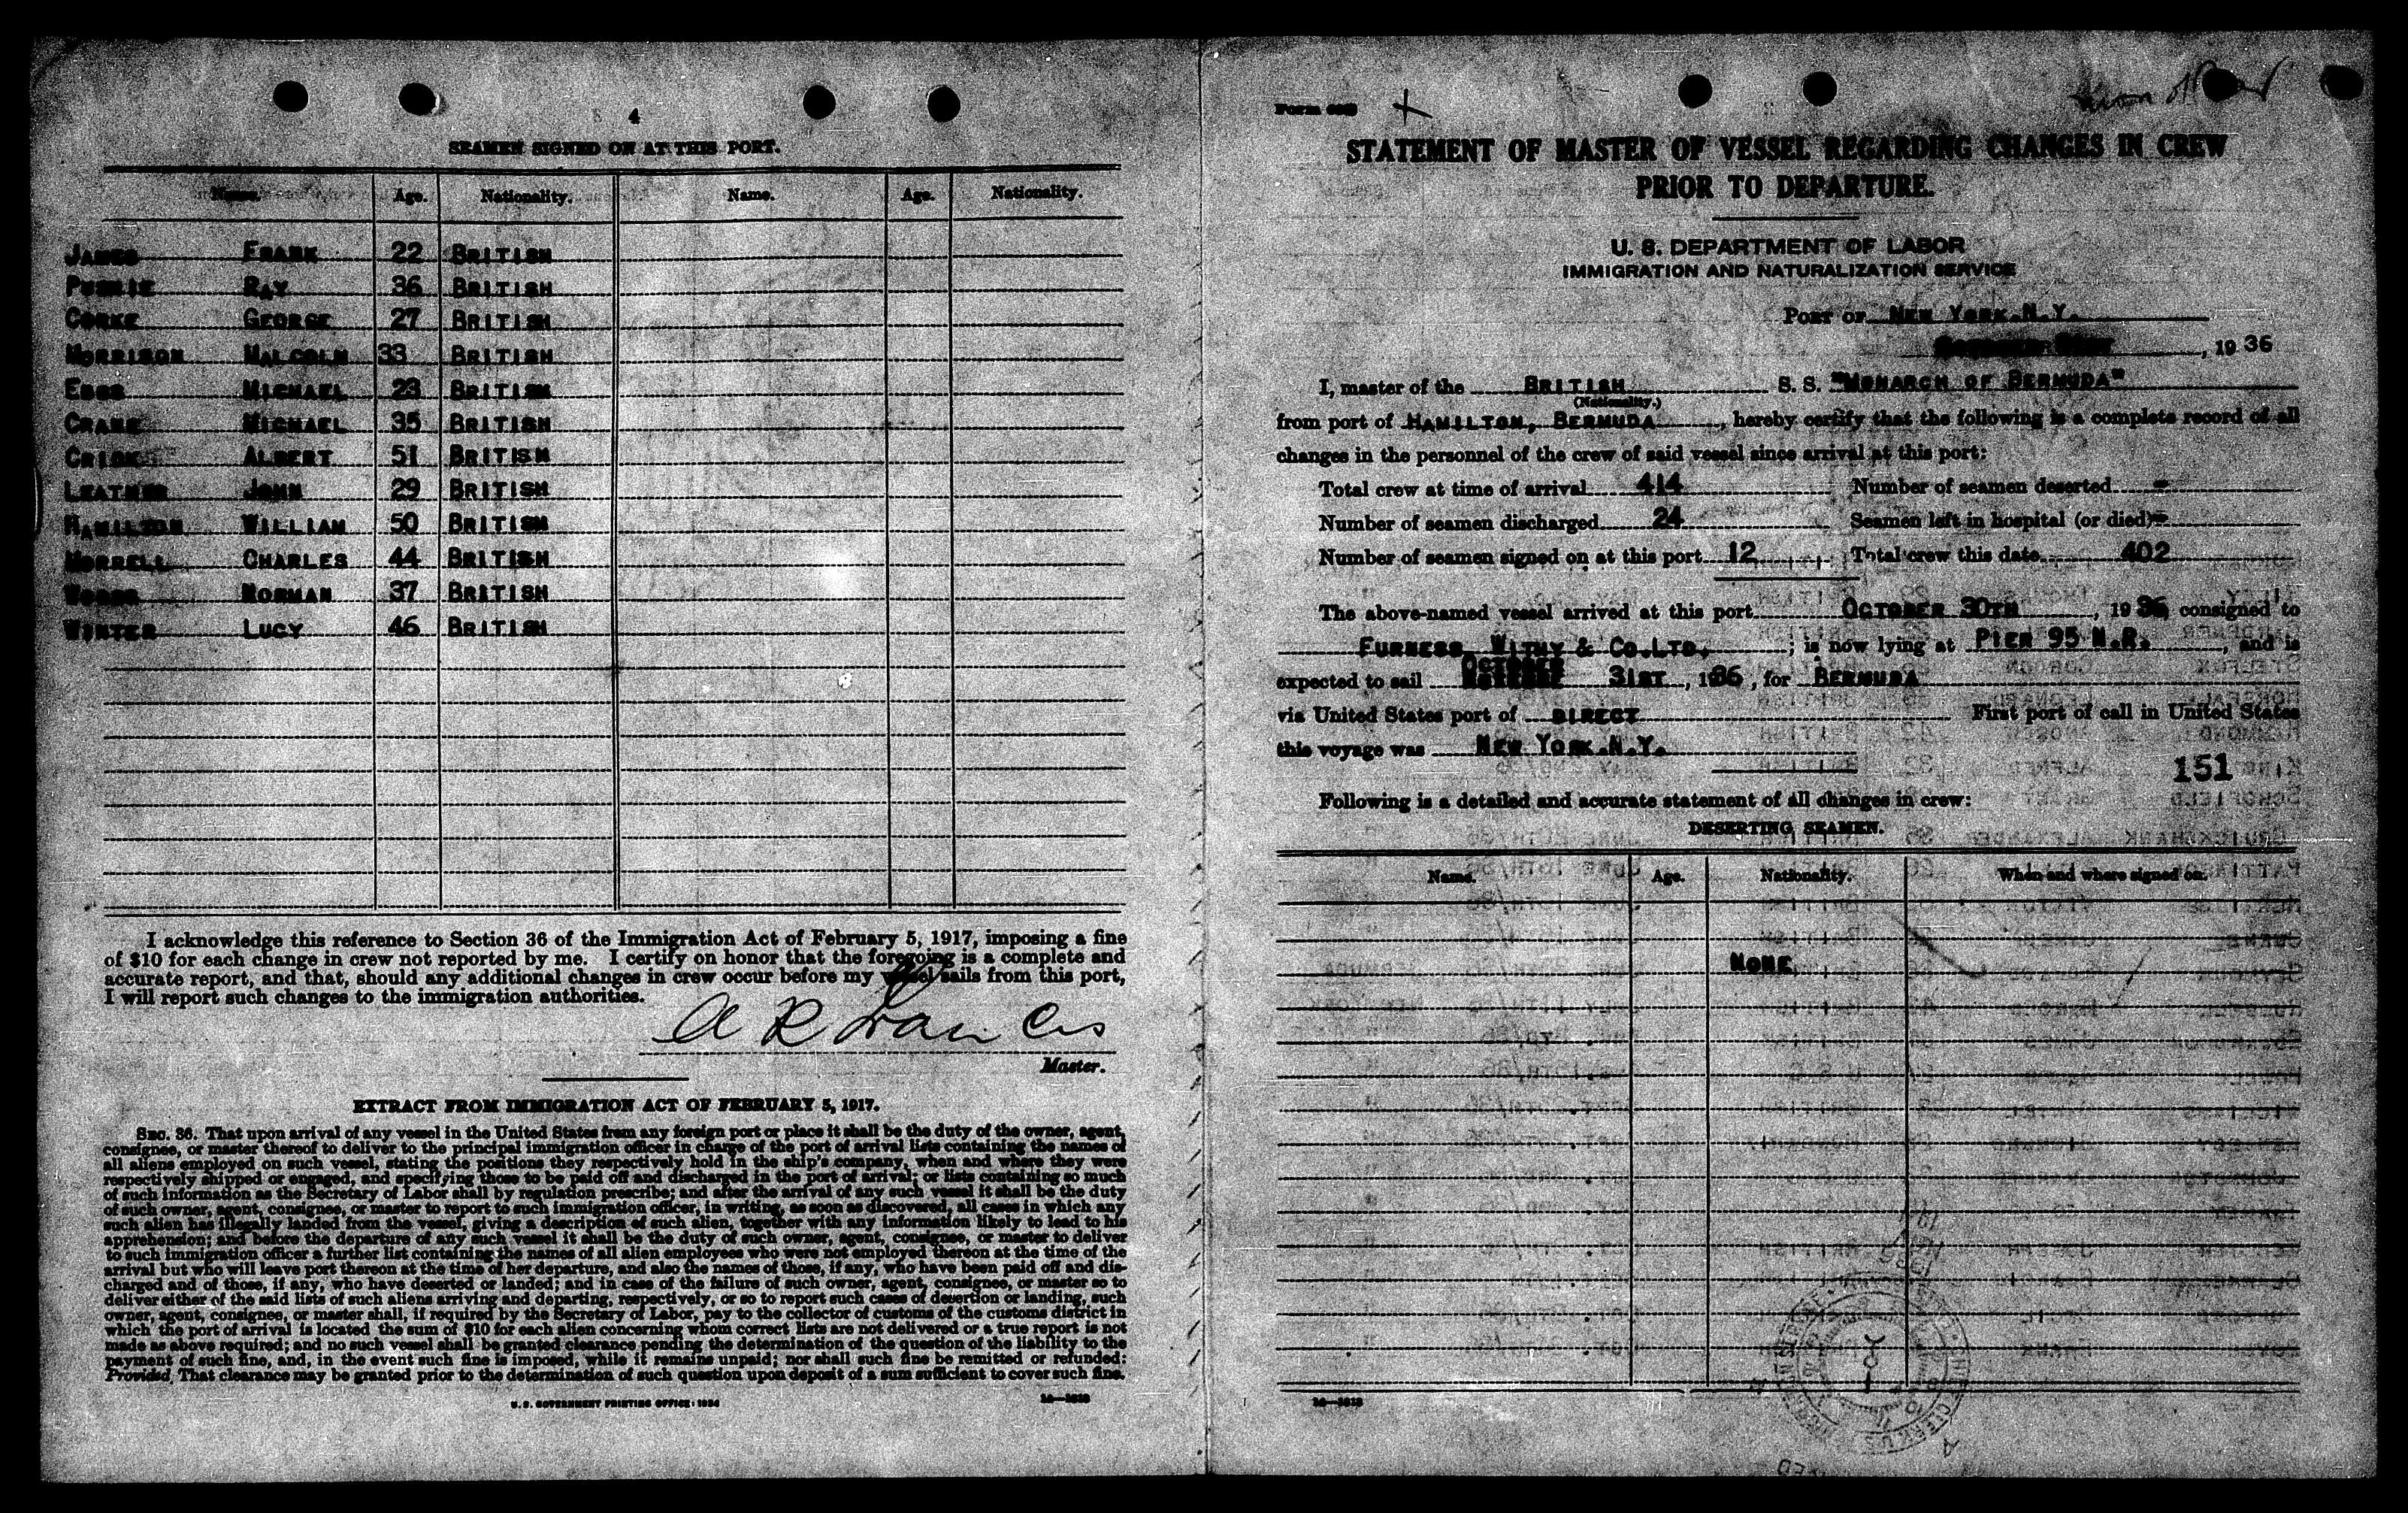 4
SEAMEN SIGNED ON AT THIS PORT.
Name. Age. Nationality. Name. Age. Nationality.
JAMES FRANK 22 BRITISH
RAY 36 BRITISH
CORKE GEORGE 27 BRITISH
MORRISON MALCOLM 33 BRITISH
MICHAEL 23 BRITISH
CRANE MICHAEL 35 BRITISH
CRICK ALBERT 51 BRITISH
LEATHER JOHN 29 BRITISH
HAMILTON WILLIAM 50 BRITISH
MORRELL CHARLES 44 BRITISH
WOODS NORMAN 37 BRITISH
WINTER LUCY 46 BRITISH
I acknowledge this reference to Section 36 of the Immigration Act of February 5, 1917, imposing a fine
of $10 for each change in crew not reported by me. I certify on honor that the foregoing is a complete and
accurate report, and that, should any additional changes in crew occur before my vessel sails from this port,
I will report such changes to the immigration authorities.
A R Francis
Master.
EXTRACT FROM IMMIGRATION ACT OF FEBRUARY 5, 1917.
SEC. 36. That upon arrival of any vessel in the United States from any foreign port or place it shall be the duty of the owner, agent,
consignee, or master thereof to deliver to the principal immigration officer in charge of the port of arrival lists containing the names of
all aliens employed on such vessel, stating the positions they respectively hold in the ship's company, when and where they were
respectively shipped or engaged, and specifying those to be paid off and discharged in the port of arrival; or lists containing so much
of such information as the Secretary of Labor shall by regulation prescribe; and after the arrival of any such vessel it shall be the duty
of such owner, agent, consignee, or master to report to such immigration officer, in writing, as soon as discovered, all cases in which any
such alien has illegally landed from the vessel, giving a description of such alien, together with any information likely to lead to his
apprehension; and before the departure of any such vessel it shall be the duty of such owner, agent, consignee, or master to deliver
to such immigration officer a further list containing the names of all alien employees who were not employed thereon at the time of the
arrival but who will leave port thereon at the time of her departure, and also the names of those, if any, who have been paid off and dis-
charged and of those, if any, who have deserted or landed; and in case of the failure of such owner, agent, consignee, or master so to
deliver either of the said lists of such aliens arriving and departing, respectively, or so to report such cases of desertion or landing, such
owner, agent, consignee, or master shall, if required by the Secretary of Labor, pay to the collector of customs of the customs district in
which the port of arrival is located the sum of $10 for each alien concerning whom correct lists are not delivered or a true report is not
made as above required; and no such vessel shall be granted clearance pending the determination of the question of the liability to the
payment of such fine, and, in the event such fine is imposed, while it remains unpaid; nor shall such fine be remitted or refunded:
Provided, That clearance may be granted prior to the determination of such question upon deposit of a sum sufficient to cover such fine.
U. S. GOVERNMENT PRINTING OFFICE: 1934
Form
STATEMENT OF MASTER OF VESSEL REGARDING CHANGES IN CREW
PRIOR TO DEPARTURE.
U. S. DEPARTMENT OF LABOR
IMMIGRATION AND NATURALIZATION SERVICE
Port of NEW YORK.N.Y.
, 1936
I, master of the BRITISH S. S. "MONARCH OF BERMUDA"
(Nationality.)
from port of HAMILTON, BERMUDA, hereby certify that the following is a complete record of all
changes in the personnel of the crew of said vessel since arrival at this port:
Total crew at time of arrival 414 Number of seamen deserted -
Number of seamen discharged 24 Seamen left in hospital (or died) -
Number of seamen signed on at this port 12 Total crew this date 402
The above-named vessel arrived at this port OCTOBER 30TH, 1936 consigned to
FURNESS, WITHY & CO.LTD.; is now lying at PIER 95 N.R., and is
expected to sail OCTOBER 31ST, 1936, for BERMUDA
via United States port of DIRECT First port of call in United States
this voyage was NEW YORK.N.Y.
151
Following is a detailed and accurate statement of all changes in crew:
DESERTING SEAMEN.
Name. Age. Nationality. When and where signed on.
NONE